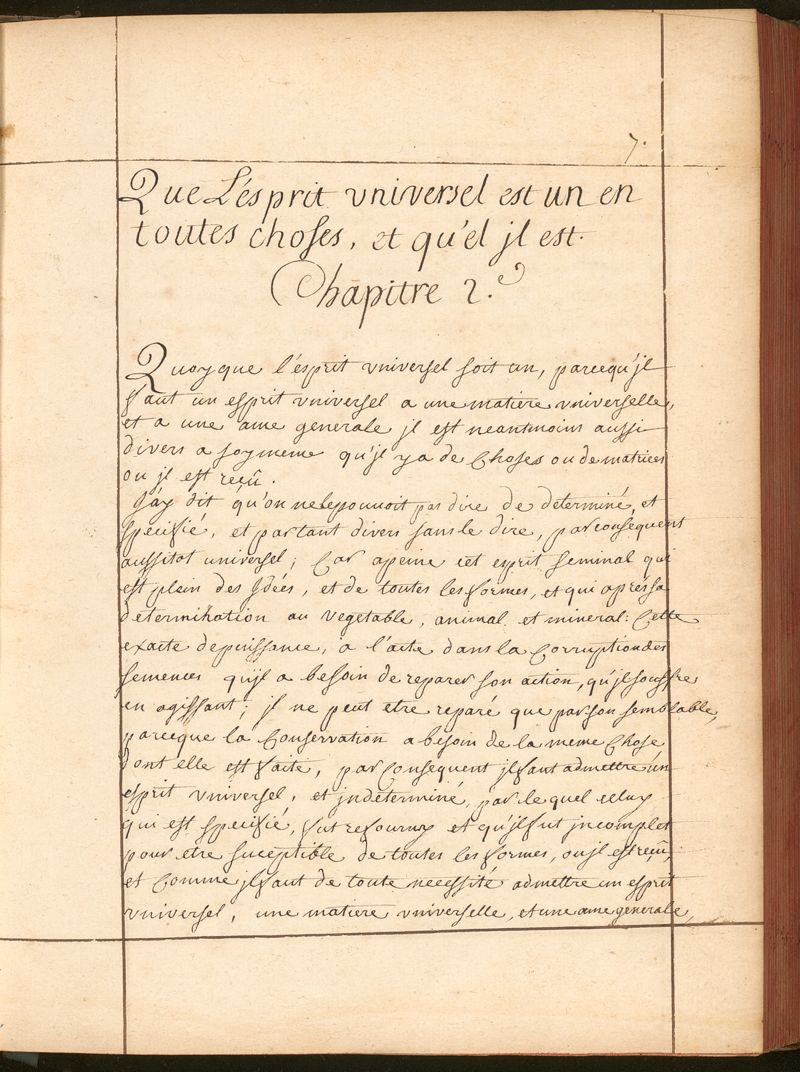 7.
Que L'ésprit vniversel est un en
toutes choses, et qu'el jl est.
Chapitre 2.e
Quoyque l'ésprit vniversel soit un, parcequ'jl
faut un esprit vniversel a une matiere vniverselle,
et a une ame generale jl est neantmoins aussi
divers a soy meme qu'jl y a de Choses ou de matrices
ou jl est reçû.
J'ay dit qu'on ne le pouvoit pas dire de determiné, et
specifié, et partant divers sans le dire, par consequent
aussitot universel; Car apeine cet esprit seminal qui
est plein des Jdées, et de toutes les formes, et qui apres sa
determination au vegetable, animal et mineral: Cette
exacte de puissance, a l'acte dans la Corruption des
semences qu'jl a besoin de reparer son action, qu'jl souffre
en agissant; jl ne peut etre reparé que par son semblable,
parceque la Conservation a besoin de la meme Chose
dont elle est faite, par Consequent jl faut admettre un
esprit vniversel, et jndeterminé, par le quel celuy
qui est specifié, fut refourny et qu'jl fut jncomplet
pour etre suceptible de toutes les formes, ou jl est reçû,
et Comme jl faut de toute necessité admettre un esprit
vniversel, une matiere vniverselle, et une ame generale,